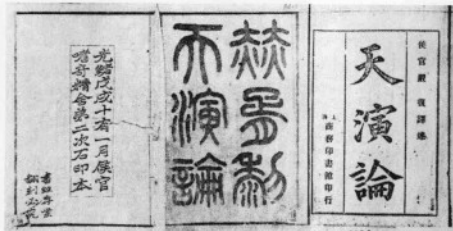 侯官嚴復譯述
天演論
上海商務印書館印行
赫胥黎
天演論
光緒戊戌十有一月侯官
嗜奇精舍第二次石印本
書經存案
翻刻必究